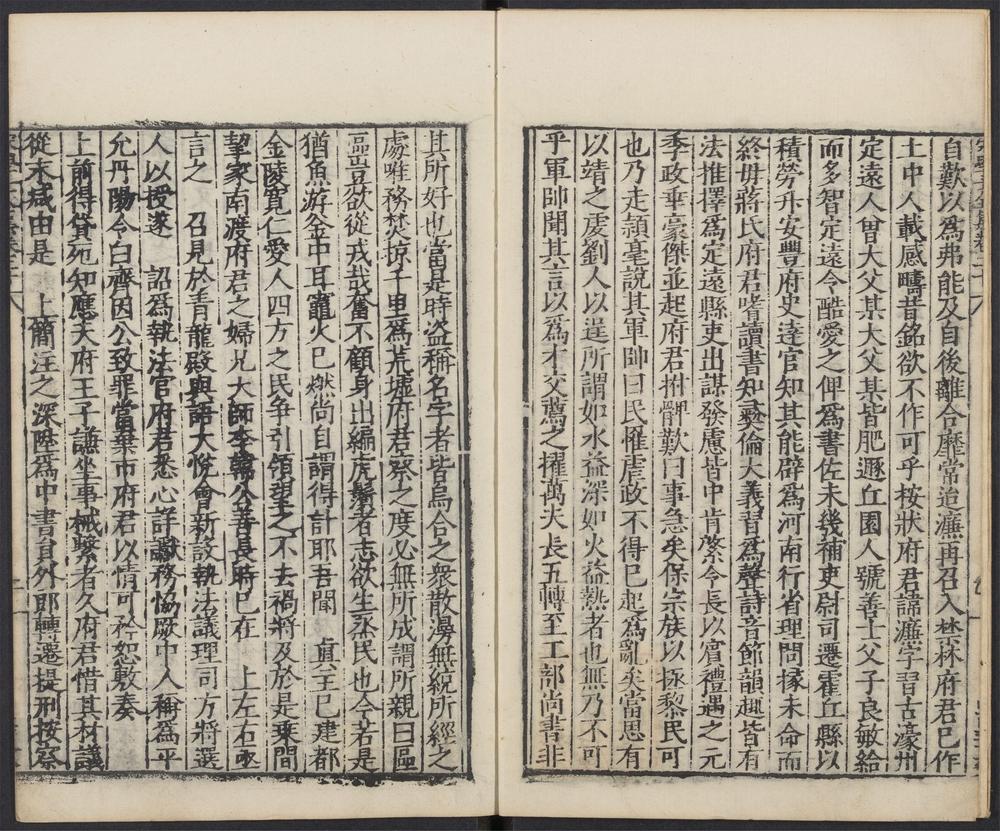 自歎以爲弗能及自後離合靡常迨濂再召入禁林府君已作
土中人載感疇昔銘欲不作可乎按狀府君諱濂字習古濠州
定遠人曾大父某大父某皆肥遯丘園人號善士父子良敏給
而多智定遠令酷愛之俾爲書佐未幾補吏尉司遷霍丘縣以
積勞升安豐府史逹官知其能辟爲河南行省理問掾未命而
終毋蔣氏府君嗜讀書知彜倫大義昔爲聲詩音節韻趣皆有
法推擇爲定遠縣吏出謀發慮皆中肯綮令長以賓禮遇之元
季政乖豪傑並起府君拊髀歎曰事急矣保宗族以拯黎民可
也乃走頴亳說其軍帥曰民罹虐政不得已起爲亂矣當思有
以靖之虔劉人以逞所謂如水益深如火益熱者也無乃不可
乎軍帥聞其言以爲才交薦之擢萬夫長五轉至工部尚書非
其所好也當是時盗稱名字者皆烏合之衆散漫無統所經之
處唯務焚掠千里爲荒墟府君察之度必無所成謂所親曰區
區豈欲從戎哉奮不顧身出編虎鬚者志欲生烝民也今若是
猶魚游釡中耳竈火已燃尚自謂得計耶吾聞 真主已建都
金陵寛仁愛人四方之民争引領望之不去禍將及於是乘間
挈家南渡府君之婦兄大師李韓公善長時已在 上左右亟
言之 召見於青龍殿與語大悅會新設執法議理司方將選
人以授遂 詔爲執法官府君悉心詳讞務恊厥中人稱爲平
允丹陽令白齊因公致罪當棄市府君以情可矜恕敷奏
上前得貸死知應天府王子謙坐事械繫者久府君惜其材議
從末减由是 上簡注之深陞爲中書員外郎轉遷提刑按察